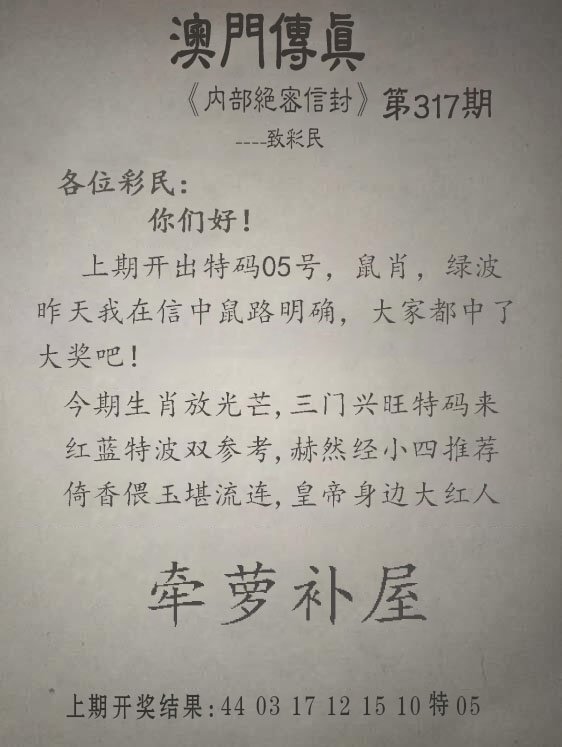 澳門傳眞
《内部絕密信封》第317期
----致彩民
各位彩民:
你们好!
上期开出特码05号,鼠肖,绿波
昨天我在信中鼠路明确,大家都中了
大奖吧!
今期生肖放光芒,三门兴旺特码来
红蓝特波双参考,赫然经小四推荐
倚香偎玉堪流连,皇帝身边大红人
牵萝补屋
上期开奖结果:44 03 17 12 15 10 特 05